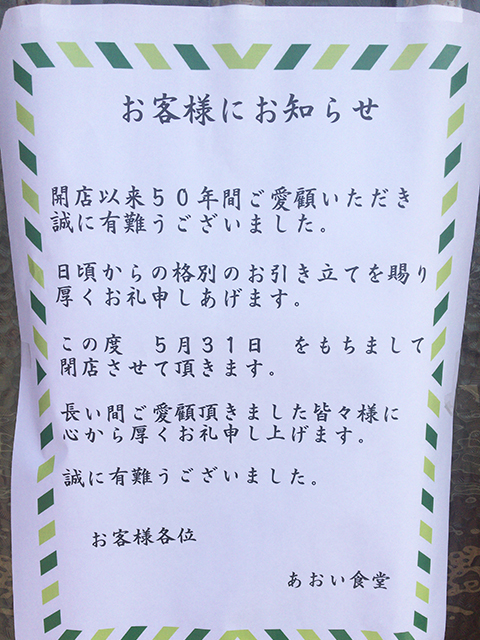 お客様にお知らせ
開店以来５０年間ご愛顧いただき
誠に有難うございました。
日頃からの格別のお引き立てを賜り
厚くお礼申しあげます。
この度　５月３１日　をもちまして
閉店させて頂きます。
長い間ご愛顧頂きました皆々様に
心から厚くお礼申し上げます。
誠に有難うございました。
お客様各位
あおい食堂